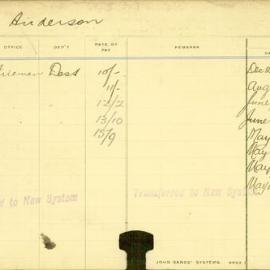 Anderson
OFFICE DEP'T RATE OF PAY REMARKS
Fireman Dest 10/- Dec
11/- Aug
12/2 June
13/10 June
15/9 May
May
May
May
to New System Transferred to New System
JOHN SANDS' SYSTEMS